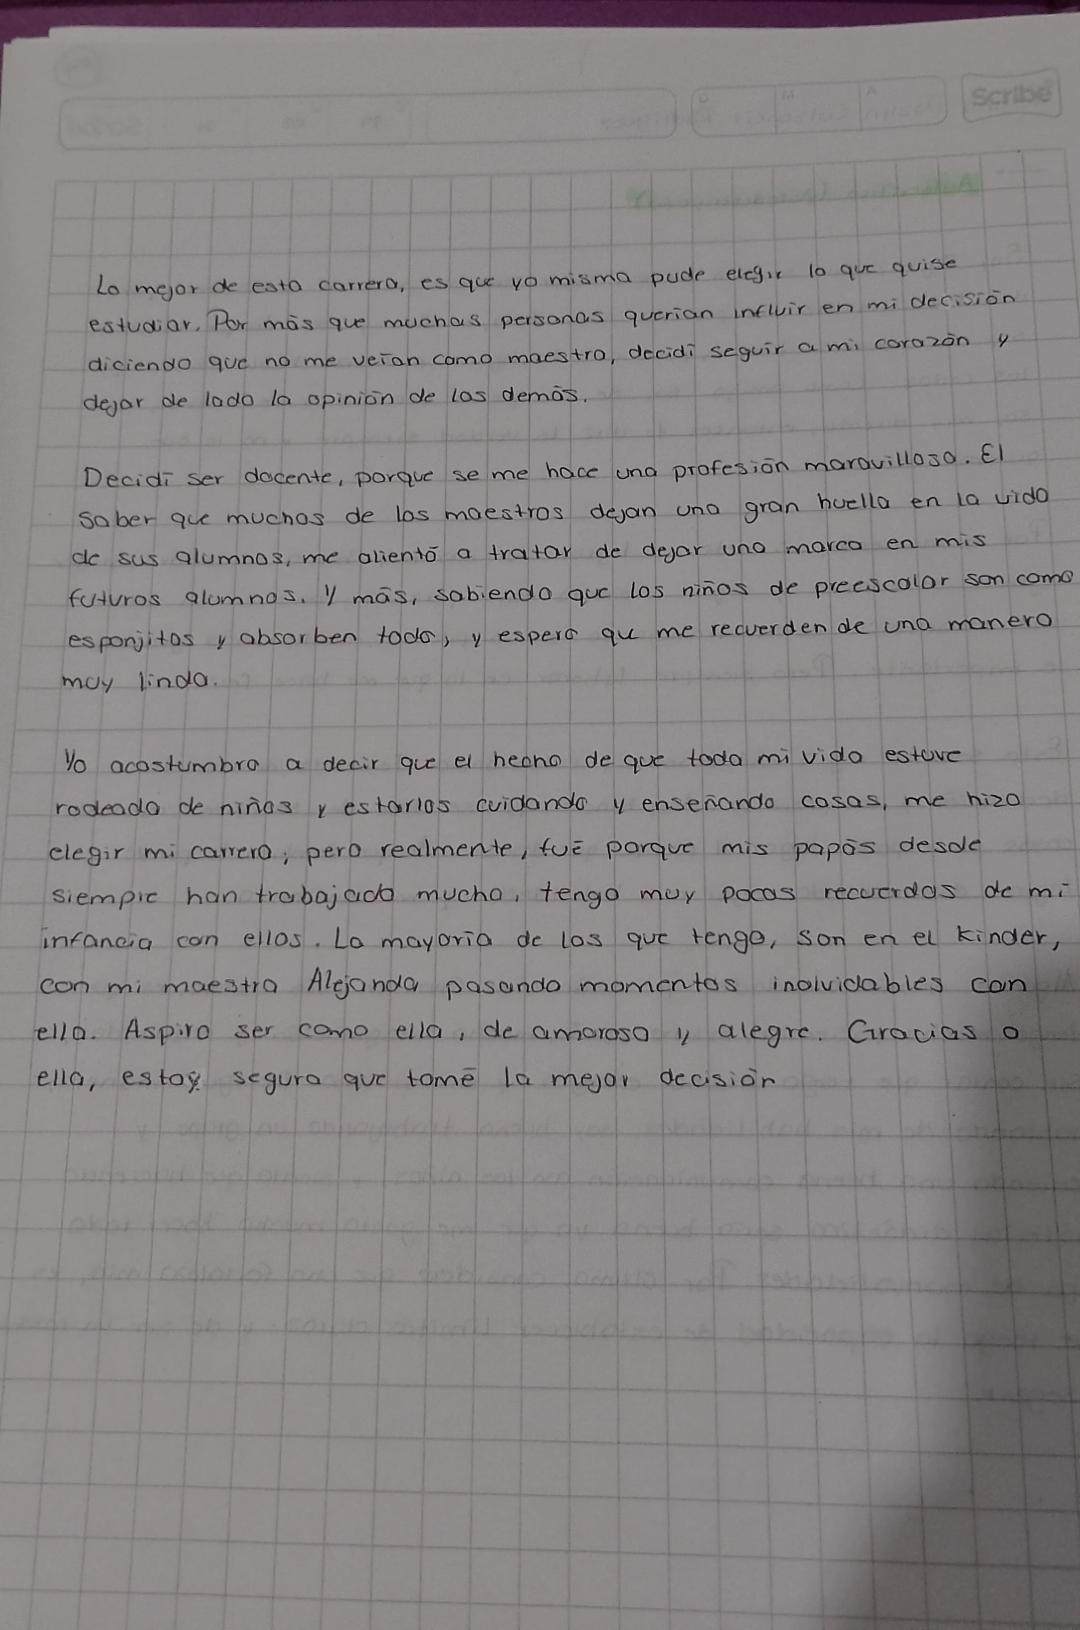 Scribe
La mejor de esta carrera, es que yo misma pude elegir lo que quise
estudiar. Por más que muchas personas querian influir en mi decisión
diciendo que no me veían como maestra, decidí seguir a mi corazón y
dejar de lado la opinión de los demás.
Decidí ser docente, porque se me hace una profesión maravillosa. El
saber que muchos de los maestros dejan una gran huella en la vida
de sus alumnos, me alientó a tratar de dejar una marca en mis
futuros alumnos. Y más, sabiendo que los niños de preescolar son como
esponjitas y absorben todo, y espero qu me recuerden de una manera
muy linda.
Yo acostumbro a decir que el hecho de que toda mi vida estuve
rodeada de niños y estarlos cuidando y enseñando cosas, me hizo
elegir mi carrera, pero realmente, fué porque mis papás desde
siempre han trabajado mucho, tengo muy pocos recuerdos de mi
infancia con ellos. La mayoría de los que tengo, son en el kinder,
con mi maestra Alejanda pasando momentos inolvidables con
ella. Aspiro ser como ella, de amorosa y alegre. Gracias a
ella, estoy segura que tomé la mejor decisión